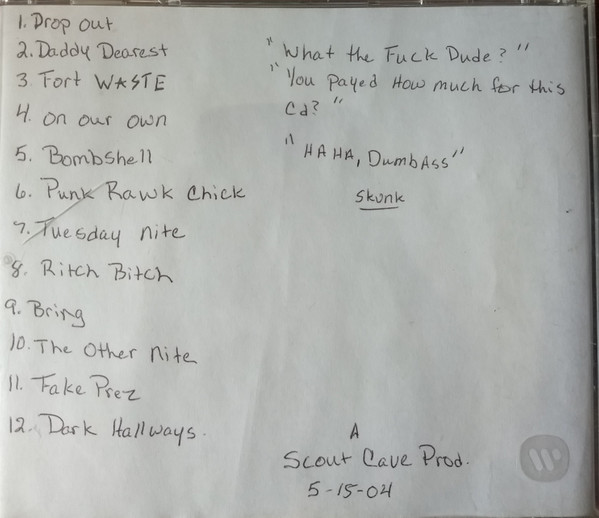 1. Drop out
2. Daddy Dearest
3. Fort WASTE
4. on our own
5. Bombshell
6. Punk Rawk Chick
7. Tuesday nite
8. Ritch Bitch
9. Bring
10. The Other nite
11. Fake Prez
12. Dark Hallways.
"What the Fuck Dude?"
"You payed How much for this
Cd?"
"HAHA, DumbAss"
Skunk
A
Scout Cave Prod.
5-15-04